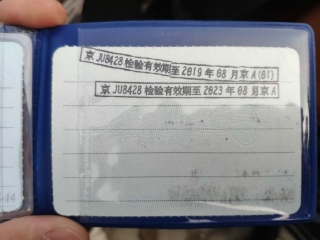 京JU8428检验有效期至2019年08月京A(01)
京JU8428检验有效期至2023年08月京A